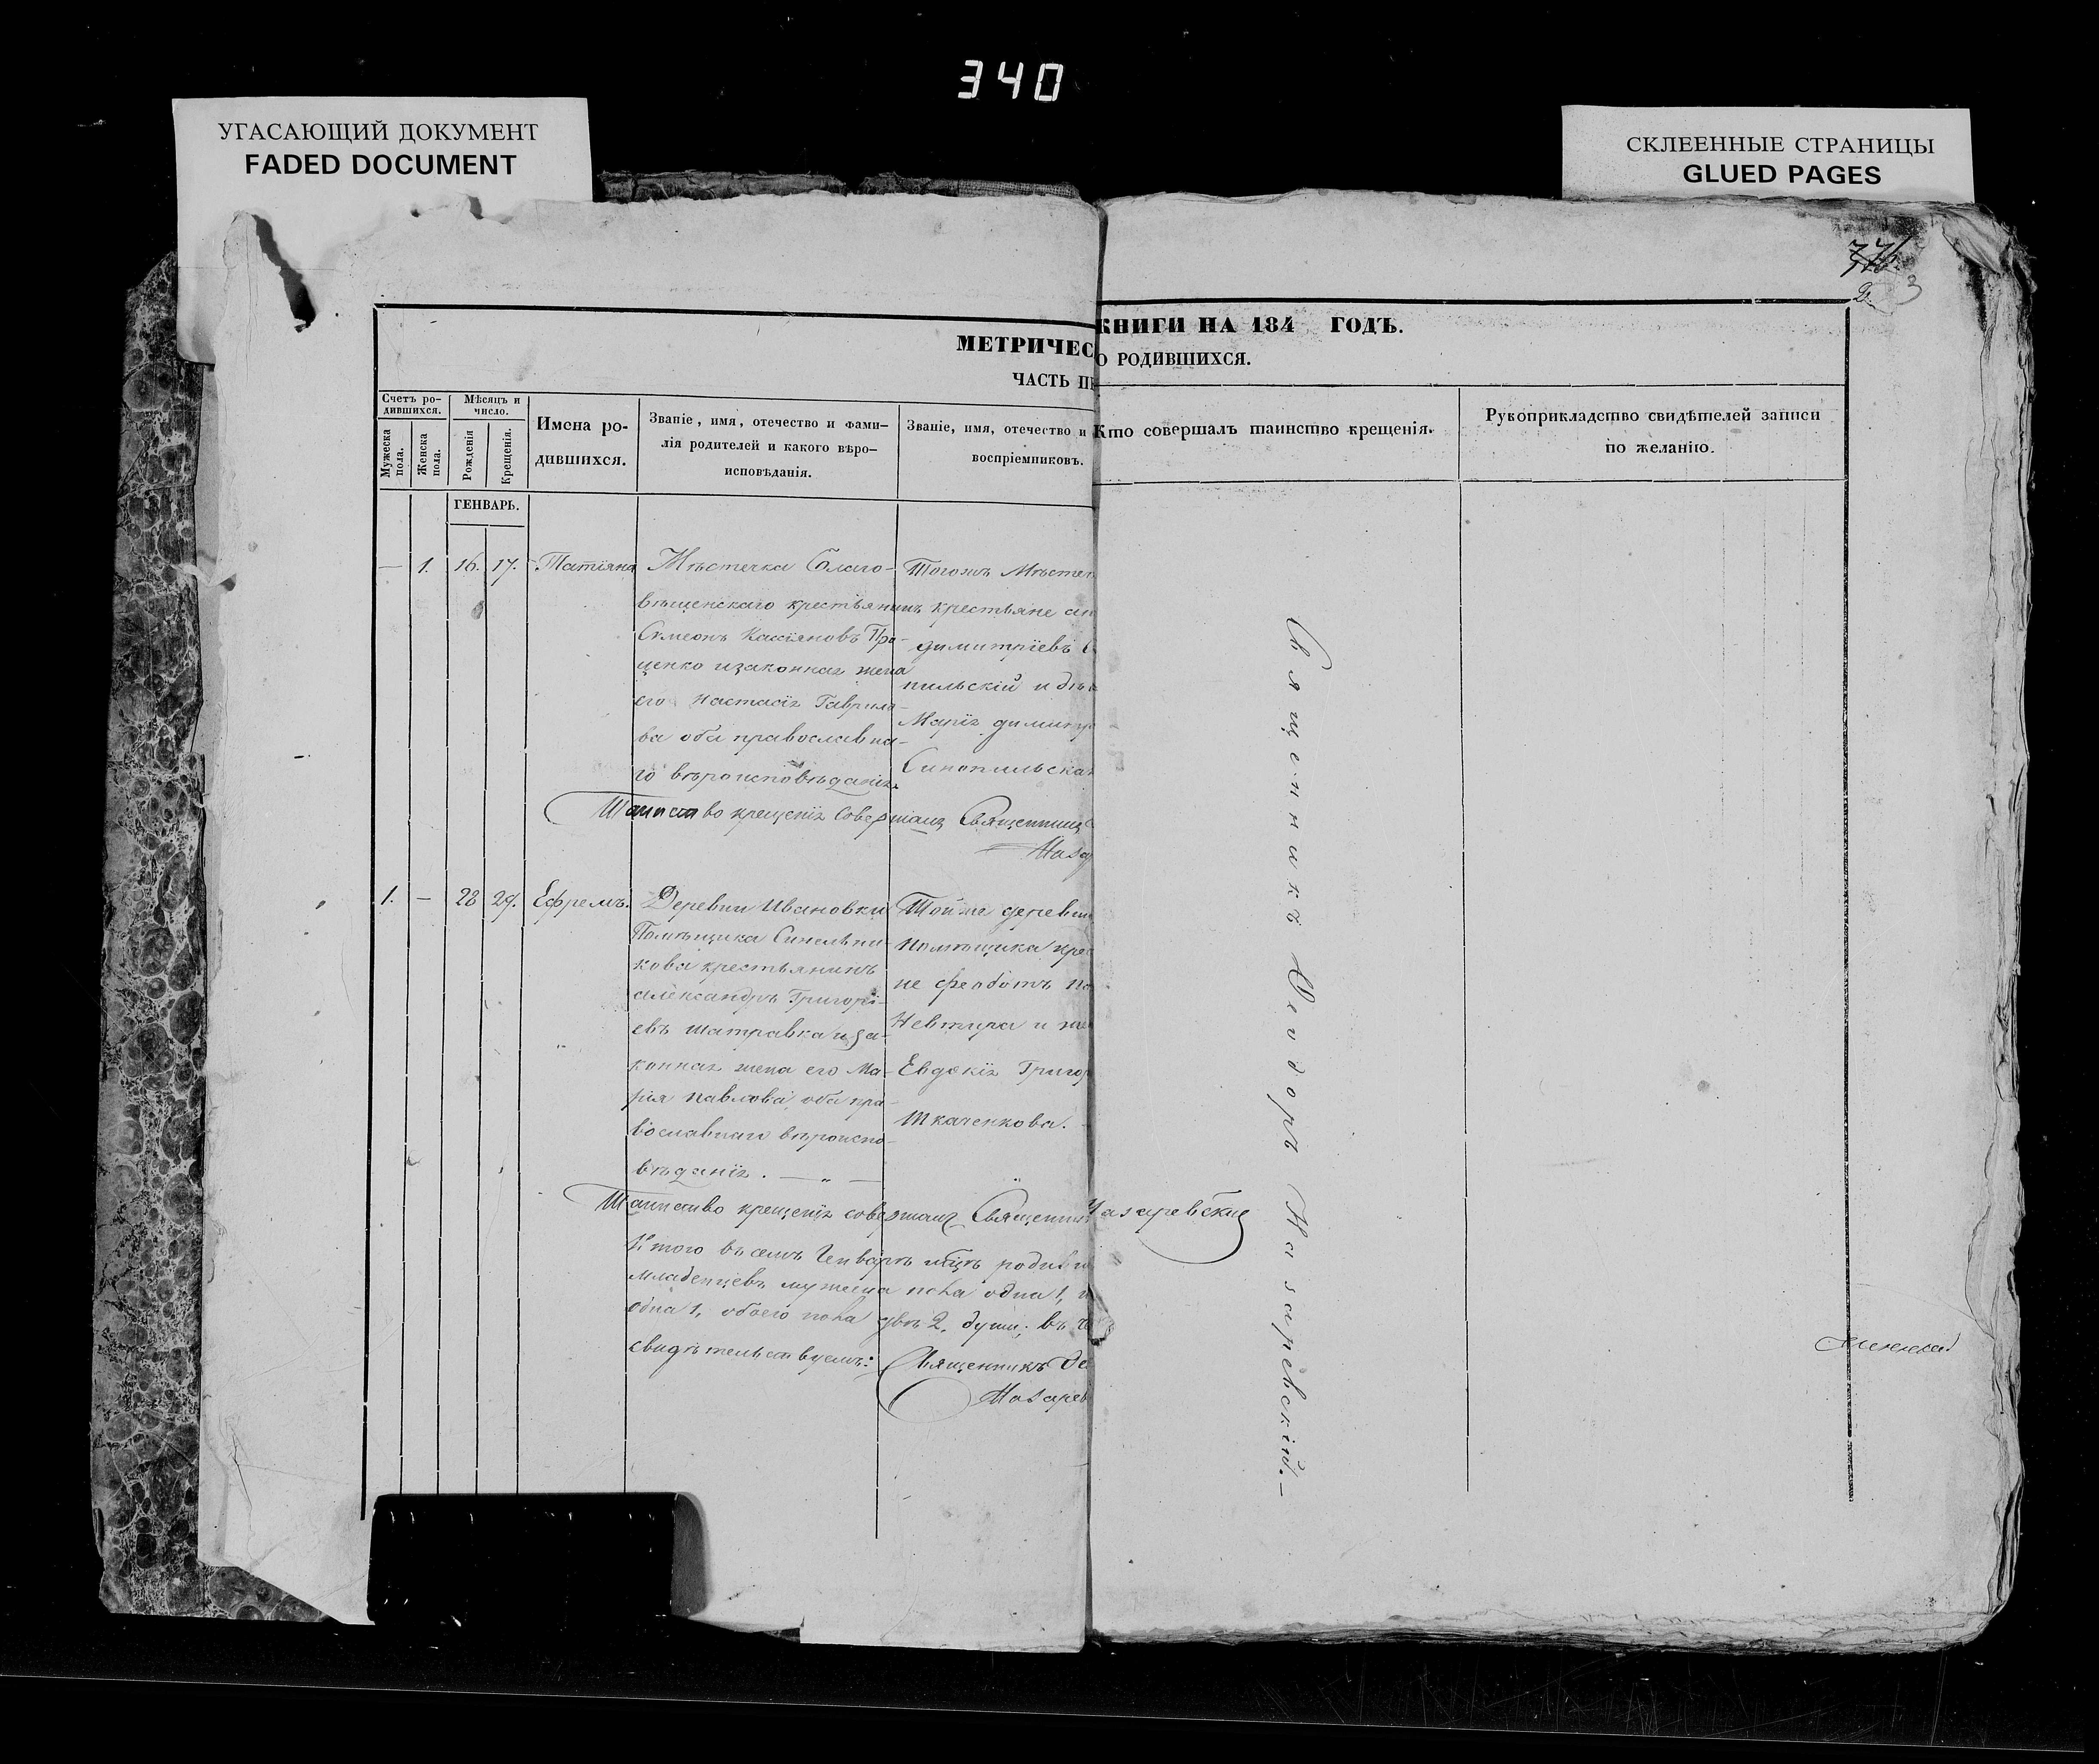 340
УГАСАЮЩИЙ ДОКУМЕНТ
FADED DOCUMENT
СКЛЕЕННЫЕ СТРАНИЦЫ
GLUED PAGES
2. 3
МЕТРИЧЕС
ЧАСТЬ ПЕ
КНИГИ НА 184 ГОДЪ.
О РОДИВШИХСЯ.
Счетъ ро-
дившихся.
Мужеска
пола.
Женска
пола.
Мѣсяцъ и
число.
Рожденія
Крещенія.
Имена ро-
дившихся.
Званіе, имя, отечество и фами-
лія родителей и какого вѣро-
исповѣданія.
Званіе, имя, отечество и
воспріемниковъ.
Кто совершалъ таинство крещенія.
Рукоприкладство свидѣтелей записи
по желанію.
ГЕНВАРЬ.
— 1. 16. 17. Татіяна
Мѣстечка Благо-
вѣщенскаго крестьянинъ
Сѵмеонъ Касіяновъ Про-
ценко и законная жена
его Настасія Гаврило-
ва оба православна-
го вѣроисповѣданія.
Тогожъ Мѣстеч
крестьяне
димитріевъ
пильскій и дѣв
Марія димитр
Синопильская
Таинство крещенія совершалъ Священникъ
Назар
1. — 28 29. Ефремъ.
Деревни Ивановки
Помѣщика Синельни-
кова крестьянинъ
александръ Григорі-
евъ Шатравка и за-
конная жена его Ма-
рія Павлова, оба пра-
вославнаго вѣроиспо-
вѣданія. — „ —
Тойже деревни
помѣщика крес
не феодотъ
Невтира и
Евдокія Григор
Ткаченкова.
Таинство крещенія совершалъ Священник
Назаревский
Итого въ семъ Генварѣ мѣцѣ родив
младенцевъ мужеска пола одна 1,
одна 1, обоего пола двѣ 2, души; въ
свидѣтельствуемъ: Священникъ Ѳе
Назарев
Священникъ Ѳеодоръ Назаревскій. —